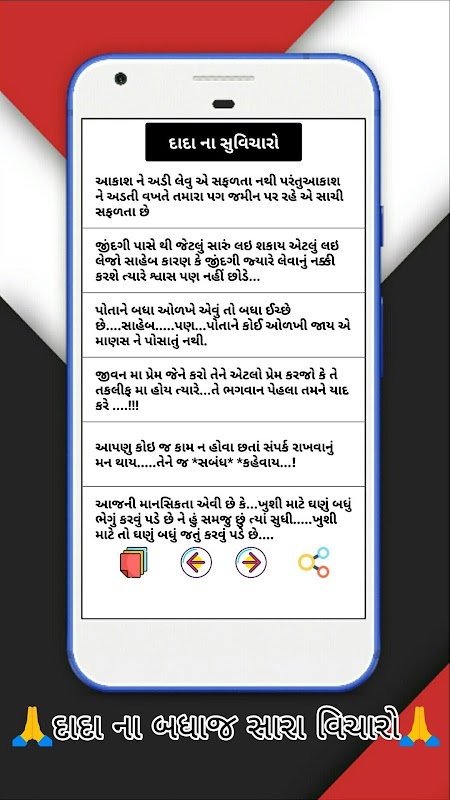 દાદા ના સુવિચારો
આકાશ ને અડી લેવુ એ સફળતા નથી પરંતુઆકાશ
ને અડતી વખતે તમારા પગ જમીન પર રહે એ સાચી
સફળતા છે
જીંદગી પાસે થી જેટલું સારું લઇ શકાય એટલું લઇ
લેજો સાહેબ કારણ કે જીંદગી જ્યારે લેવાનું નક્કી
કરશે ત્યારે શ્વાસ પણ નહીં છોડે...
પોતાને બધા ઓળખે એવું તો બધા ઈચ્છે
છે....સાહેબ.....પણ...પોતાને કોઈ ઓળખી જાય એ
માણસ ને પોસાતું નથી.
જીવન મા પ્રેમ જેને કરો તેને એટલો પ્રેમ કરજો કે તે
તકલીફ મા હોય ત્યારે...તે ભગવાન પેહલા તમને યાદ
કરે ....!!!
આપણુ કોઇ જ કામ ન હોવા છતાં સંપર્ક રાખવાનું
મન થાય.....તેને જ *સબંધ* *કહેવાય...!
આજની માનસિકતા એવી છે કે...ખુશી માટે ઘણું બધું
ભેગું કરવું પડે છે ને હું સમજુ છું ત્યાં સુધી.....ખુશી
માટે તો ઘણું બધું જતું કરવું પડે છે....
🙏દાદા ના બધાજ સારા વિચારો🙏